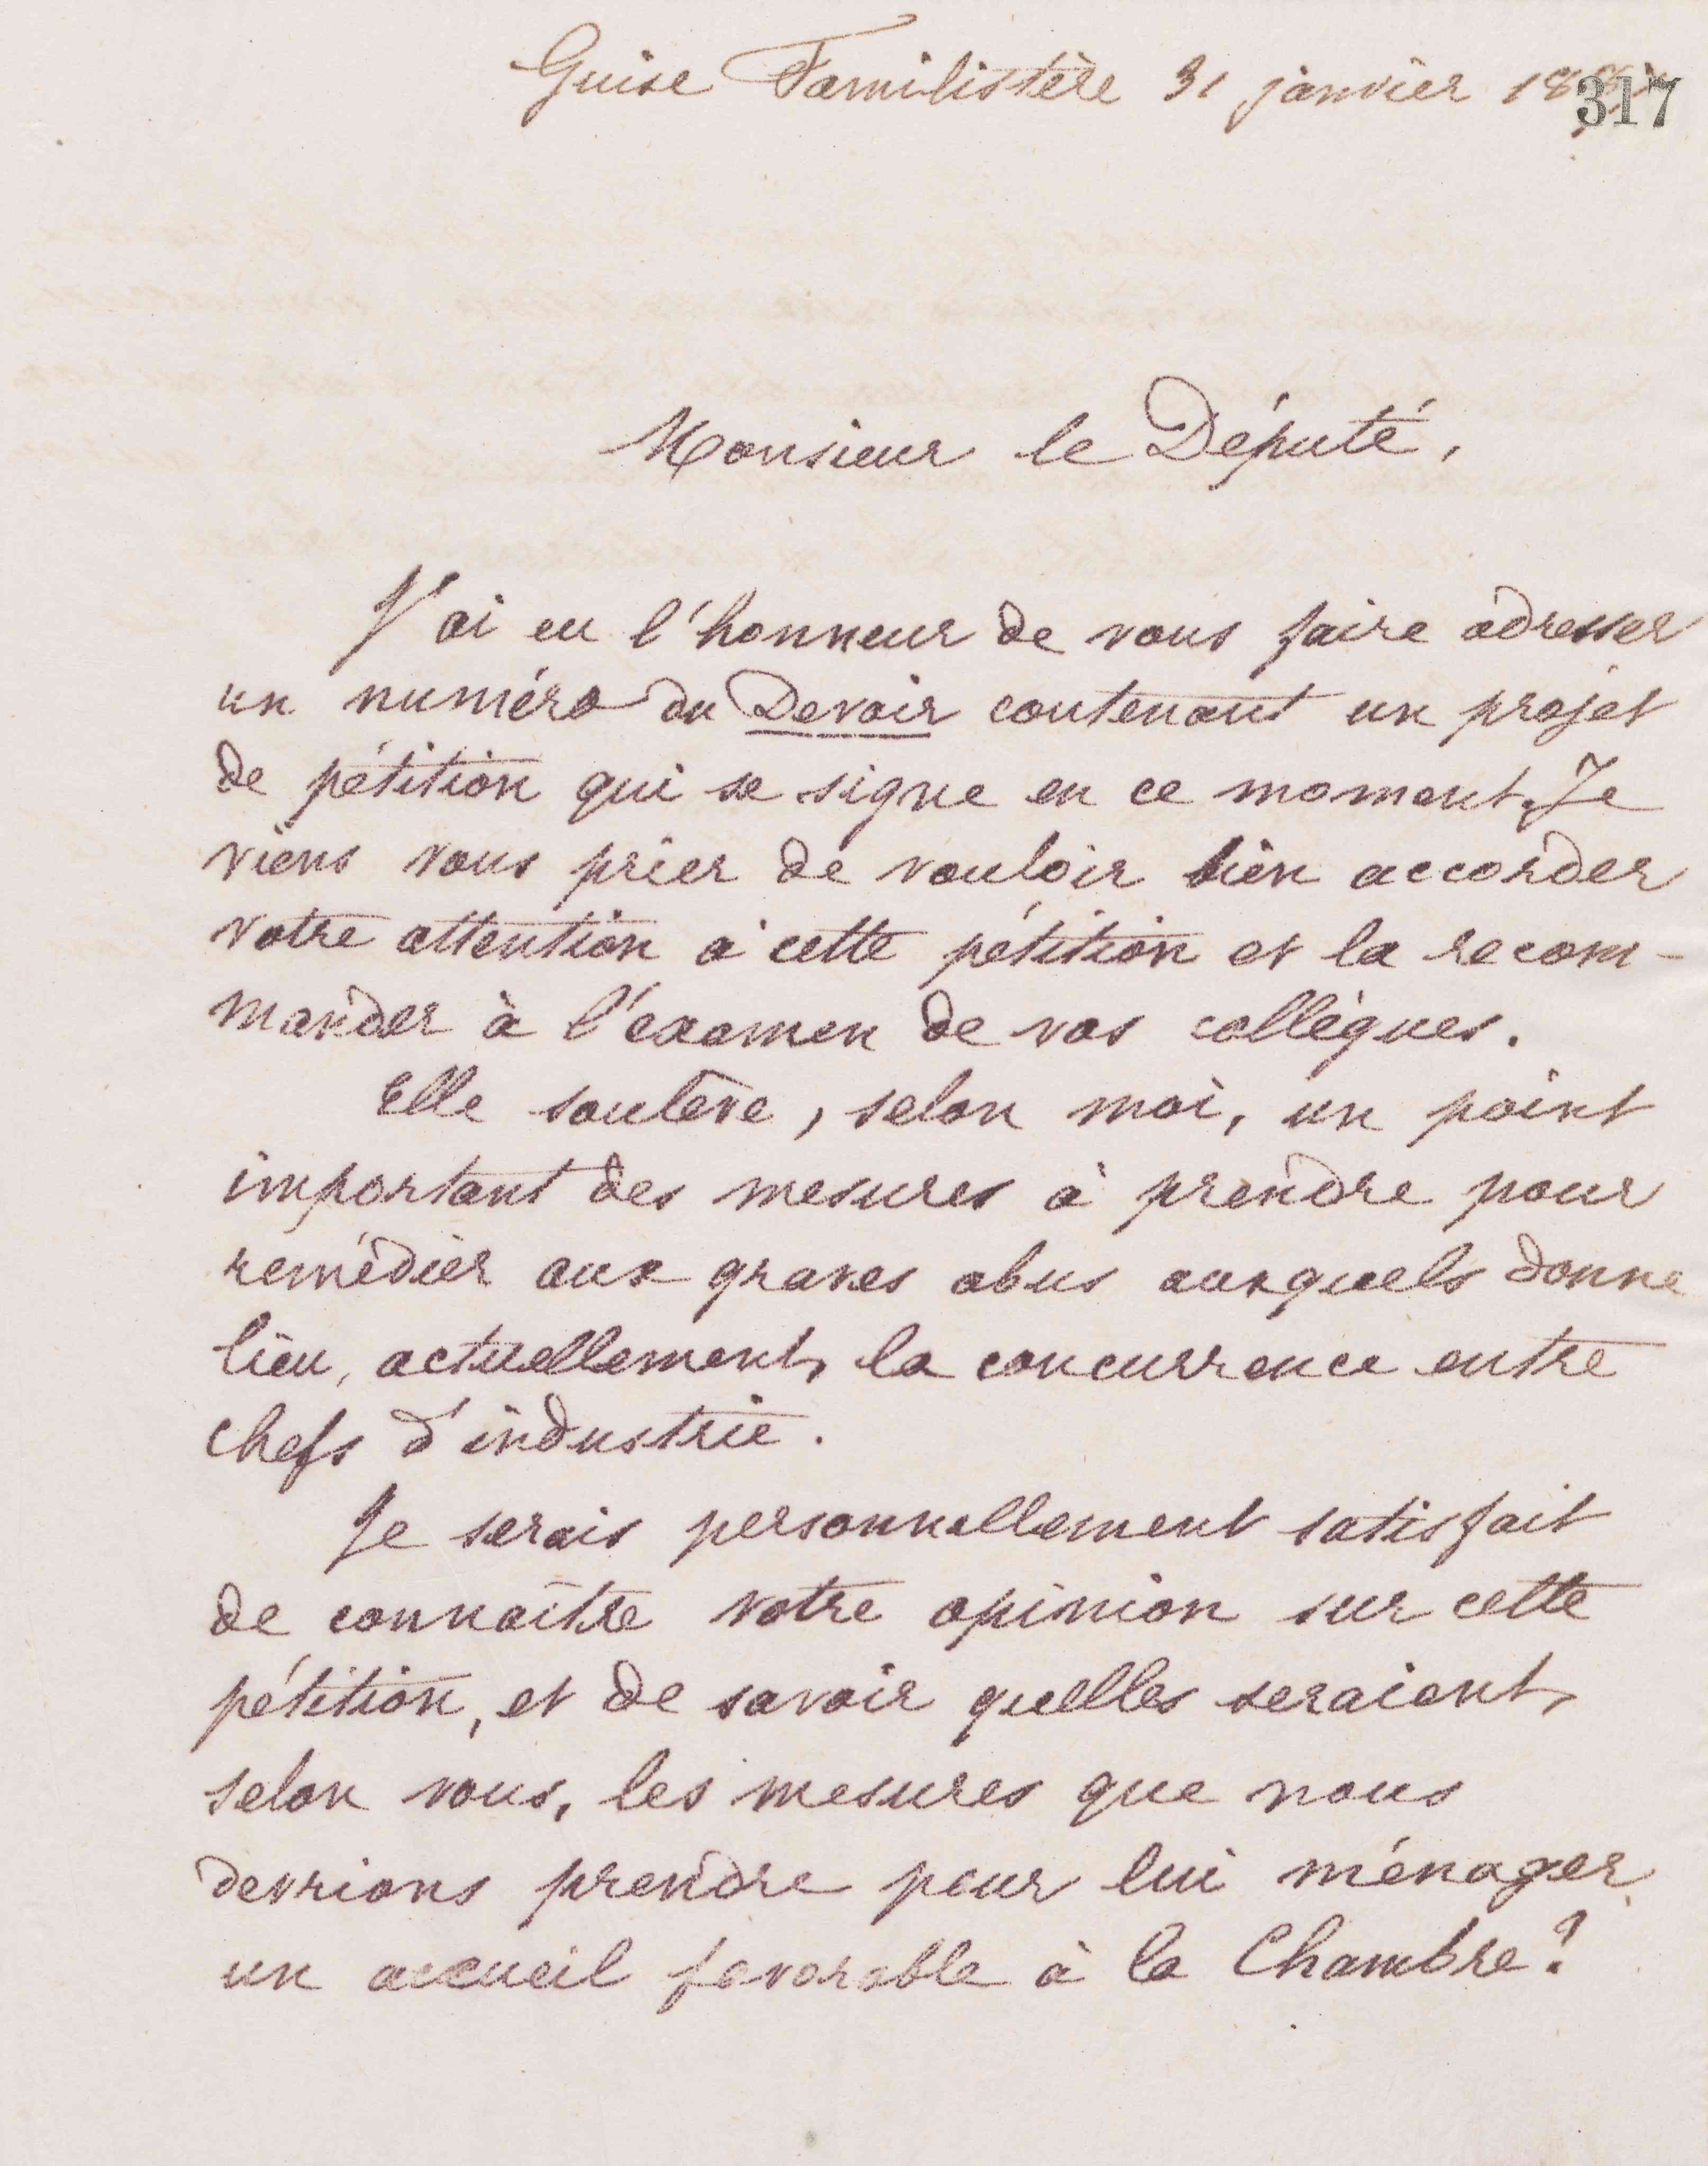 Guise Familistère 31 janvier 18
317
Monsieur le Député,
J'ai eu l'honneur de vous faire adresser
un numéro du Devoir contenant un projet
de pétition qui se signe en ce moment. Je
viens vous prier de vouloir bien accorder
votre attention à cette pétition et la recom-
mander à l'examen de vos collègues.
Elle soulève, selon moi, un point
important des mesures à prendre pour
remédier aux graves abus auxquels donne
lieu, actuellement, la concurrence entre
chefs d'industrie.
Je serais personnellement satisfait
de connaître votre opinion sur cette
pétition, et de savoir quelles seraient,
selon vous, les mesures que nous
devrions prendre pour lui ménager
un accueil favorable à la Chambre?